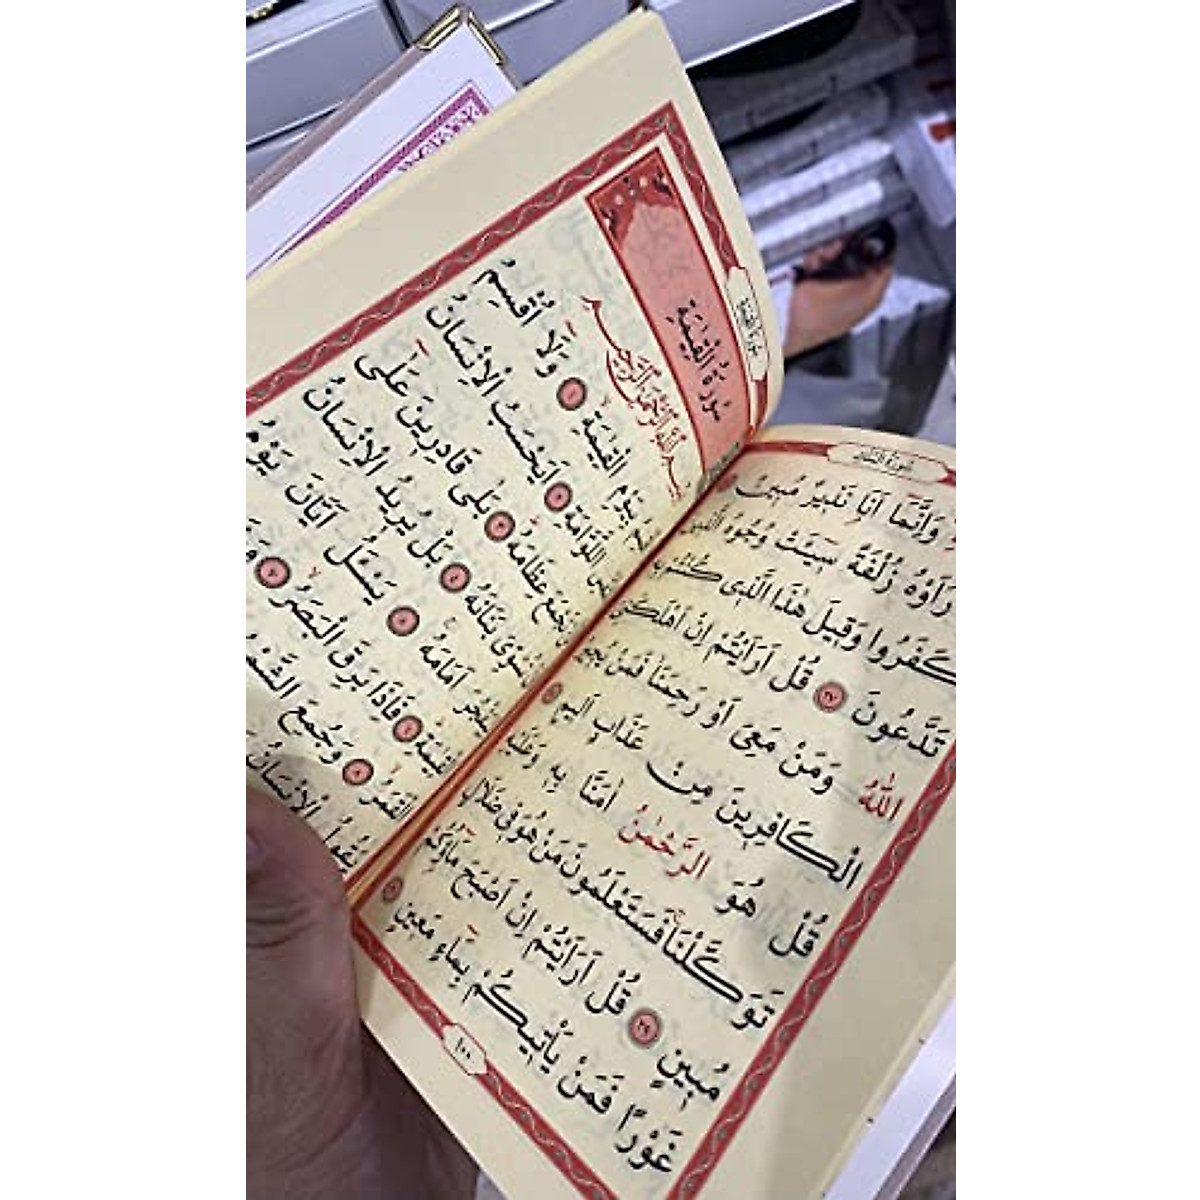 سُورَةُ الْمُلْكِ
وَاِنَّمَا اَنَا نَذِيرٌ مُبِينٌ
رَاَوْهُ زُلْفَةً سِيـَٔتْ وُجُوهُ الَّذِينَ
كَفَرُوا وَقِيلَ هٰذَا الَّذِى كُنْتُمْ
تَدَّعُونَ ٢٧ قُلْ اَرَاَيْتُمْ اِنْ اَهْلَكَنِىَ
اللّٰهُ وَمَنْ مَعِىَ اَوْ رَحِمَنَا فَمَنْ يُجِيرُ
الْكَافِرِينَ مِنْ عَذَابٍ اَلِيمٍ
قُلْ هُوَ الرَّحْمٰنُ اٰمَنَّا بِهِ وَعَلَيْهِ
تَوَكَّلْنَا فَسَتَعْلَمُونَ مَنْ هُوَ فِى ضَلَالٍ
مُبِينٍ ٢٩ قُلْ اَرَاَيْتُمْ اِنْ اَصْبَحَ مَاؤُكُمْ
غَوْرًا فَمَنْ يَأْتِيكُمْ بِمَاءٍ مَعِينٍ
١٠٠
سُورَةُ الْقِيٰمَةِ
سُورَةُ الْقِيٰمَةِ
بِسْمِ اللّٰهِ الرَّحْمٰنِ الرَّحِيمِ
بِيَوْمِ الْقِيٰمَةِ ١ وَلَا اُقْسِمُ
اللَّوَّامَةِ ٢ اَيَحْسَبُ الْاِنْسَانُ
نَجْمَعَ عِظَامَهُ ٣ بَلٰى قَادِرِينَ عَلٰى
نُسَوِّىَ بَنَانَهُ ٤ بَلْ يُرِيدُ الْاِنْسَانُ
لِيَفْجُرَ اَمَامَهُ ٥ يَسْـَٔلُ اَيَّانَ يَوْمُ
الْقِيٰمَةِ ٦ فَاِذَا بَرِقَ الْبَصَرُ ٧
الْقَمَرُ ٨ وَجُمِعَ الشَّمْسُ
يَقُولُ الْاِنْسَانُ